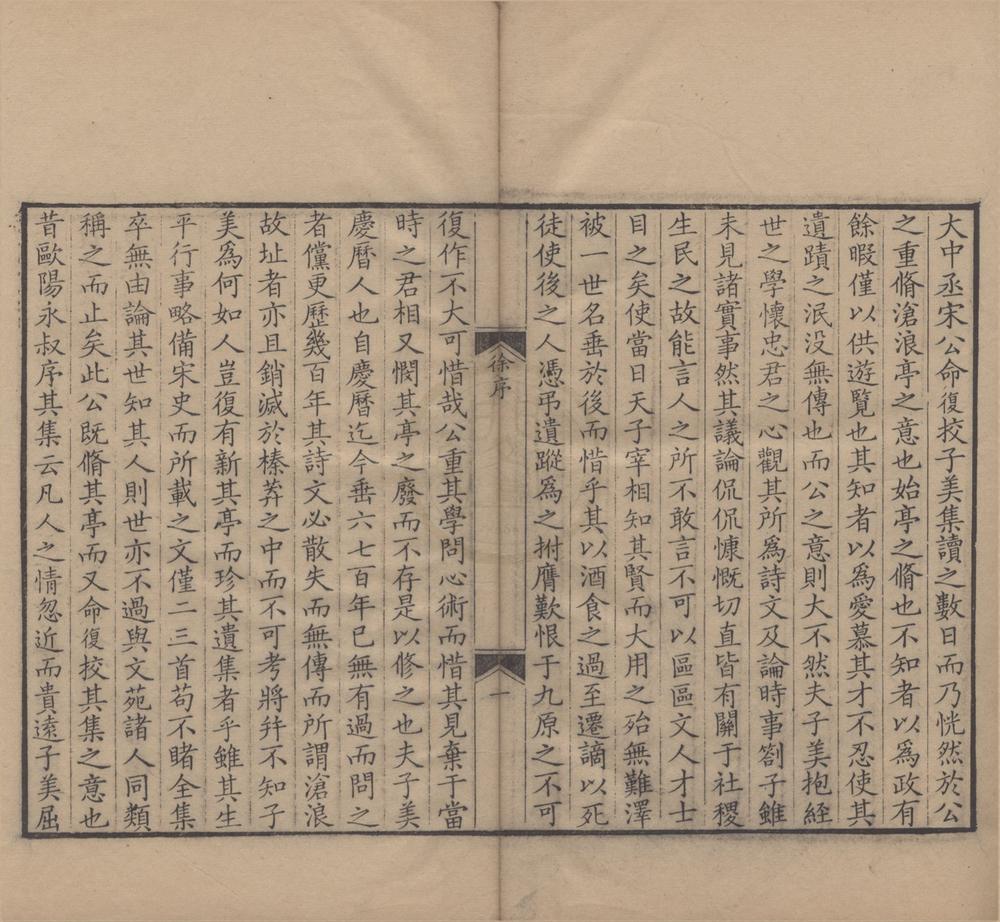 大中丞宋公命復挍子美集讀之數日而乃恍然於公
之重脩滄浪亭之意也始亭之脩也不知者以為政有
餘暇僅以供遊覽也其知者以為愛慕其才不忍使其
遺蹟之泯没無傳也而公之意則大不然夫子美抱經
世之學懷忠君之心觀其所為詩文及論時事劄子雖
未見諸實事然其議論侃侃慷慨切直皆有關于社稷
生民之故能言人之所不敢言不可以區區文人才士
目之矣使當日天子宰相知其賢而大用之殆無難澤
被一世名垂於後而惜乎其以酒食之過至遷謫以死
徒使後之人憑弔遺蹤為之拊膺歎恨于九原之不可
徐序
一
復作不大可惜哉公重其學問心術而惜其見棄于當
時之君相又憫其亭之廢而不存是以修之也夫子美
慶曆人也自慶曆迄今垂六七百年已無有過而問之
者儻更歷幾百年其詩文必散失而無傳而所謂滄浪
故址者亦且銷滅於榛莽之中而不可考將并不知子
美為何如人豈復有新其亭而珍其遺集者乎雖其生
平行事略備宋史而所載之文僅二三首苟不睹全集
卒無由論其世知其人則世亦不過與文苑諸人同類
稱之而止矣此公既脩其亭而又命復挍其集之意也
昔歐陽永叔序其集云凡人之情忽近而貴遠子美屈